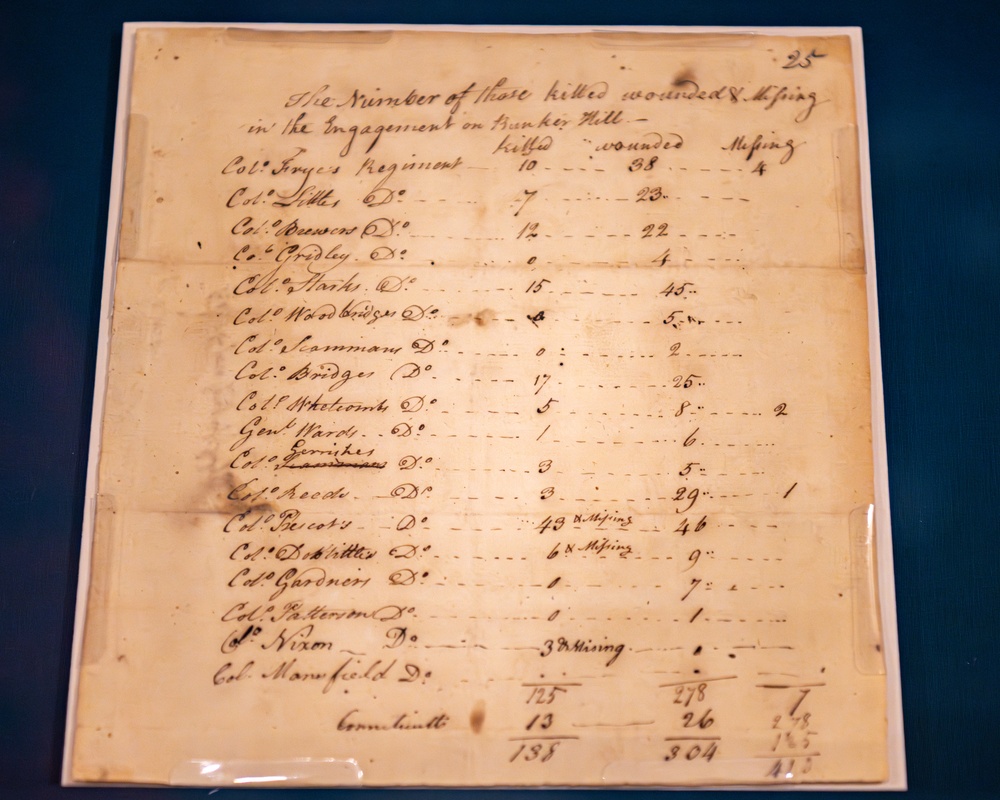 25
The Number of those killed wounded & Missing
in the Engagement on Bunker Hill. —
killed " wounded Missing
Col.º Fryes Regiment 10 38 4
Col.º Littles Dº 7 23
Col.º Brewers Dº 12 22
Co.º Gridley Dº 0 4
Col.º Starks Dº 15 45
Col.º Woodbridges Dº 5
Col.º Scammans Dº 0 2
Col.º Bridges Dº 17 25
Col.º Whetcombs Dº 5 8 2
Genl. Wards Dº 1 6
Gerrishes
Col.º Dº 3 5
Col.º Reeds Dº 3 29 1
Col.º Prescots Dº 43 & Missing 46
Col.º Doolittles Dº 6 & Missing 9
Col.º Gardners Dº 0 7
Col.º Patterson Dº 0 1
Col.º Nixon Dº 3 & Missing
Col. Mansfield Dº
125 278 7
13 26 278
138 304